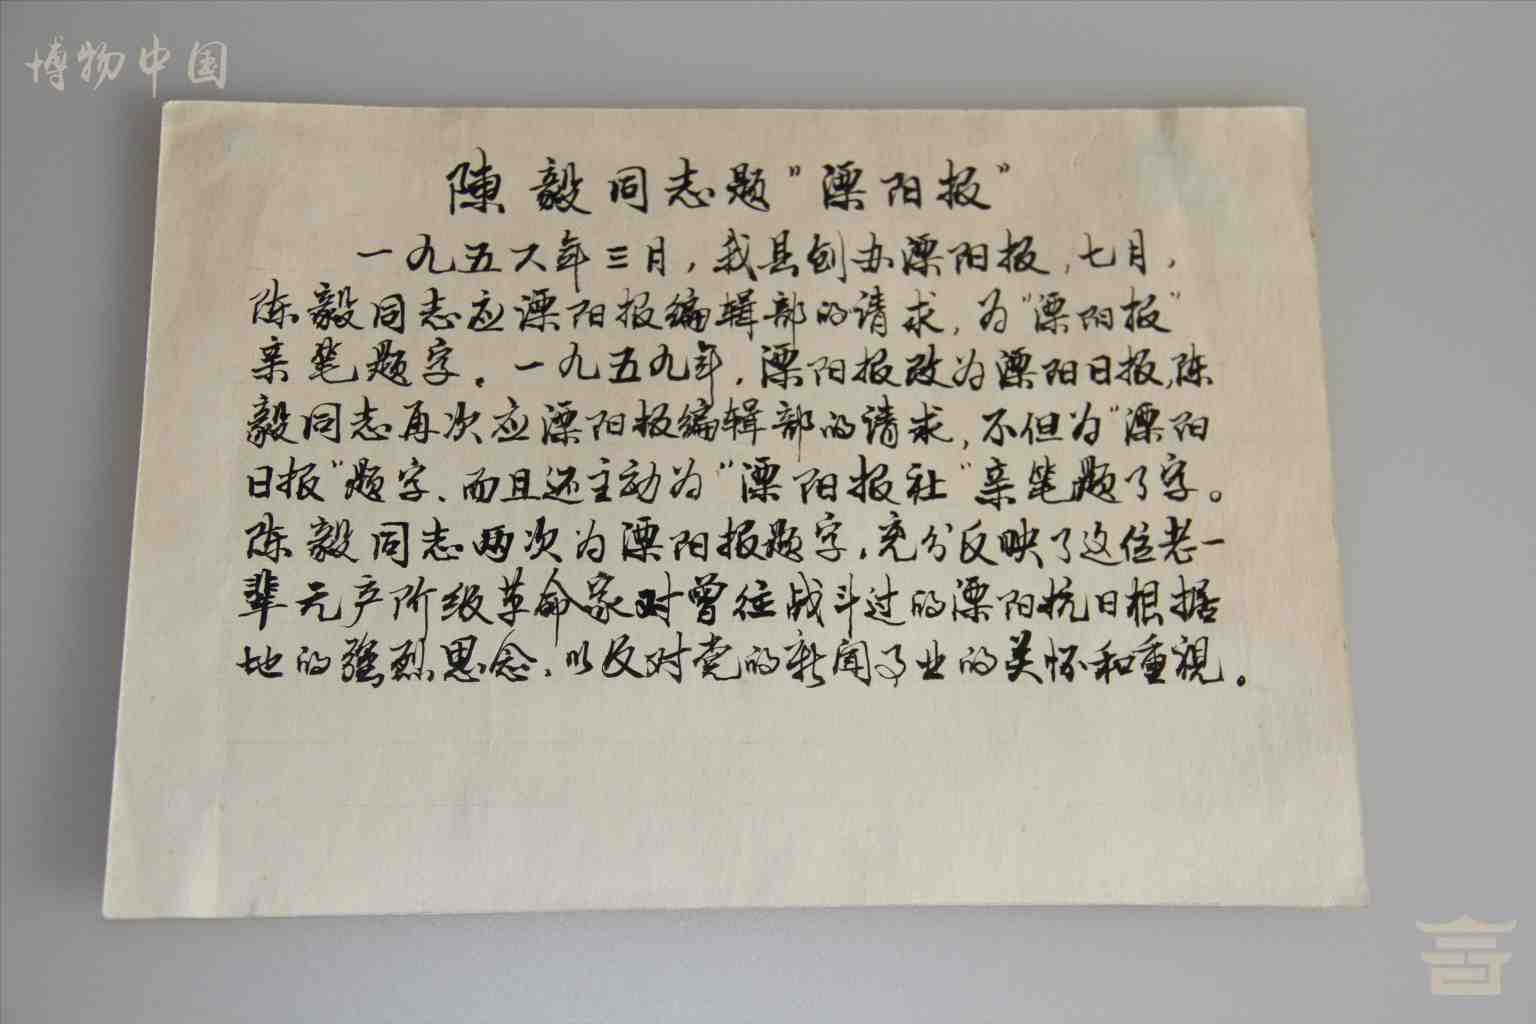 博物中国
陳毅同志题"溧阳报"
一九五六年三月，我县创办溧阳报，七月，
陈毅同志应溧阳报编辑部的请求，为"溧阳报"
亲笔题字。一九五九年，溧阳报改为溧阳日报，陈
毅同志再次应溧阳报编辑部的请求，不但为"溧阳
日报"题字、而且还主动为"溧阳报社"亲笔题了字。
陈毅同志两次为溧阳报题字，充分反映了这位老一
辈无产阶级革命家对曾往战斗过的溧阳抗日根据
地的强烈思念，以及对党的新闻事业的关怀和重视。